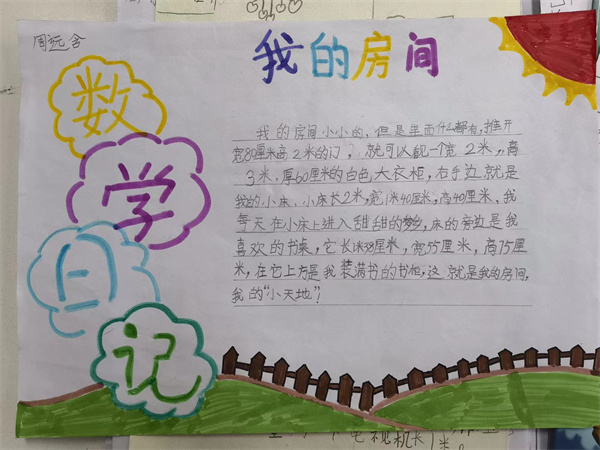 周远含
我的房间
数
学
日
记
我的房间小小的，但是里面什么都有，推开
宽80厘米高2米的门，就可以看见一个宽2米，高
3米，厚60厘米的白色大衣柜，右手边就是
我的小床，小床长2米，宽1米40厘米，高40厘米，我
每天在小床上进入甜甜的梦乡，床的旁边是我
喜欢的书桌，它长1米38厘米，宽55厘米，高75厘
米，在它上方是我装满书的书柜，这就是我的房间，
我的“小天地”！
电视机长